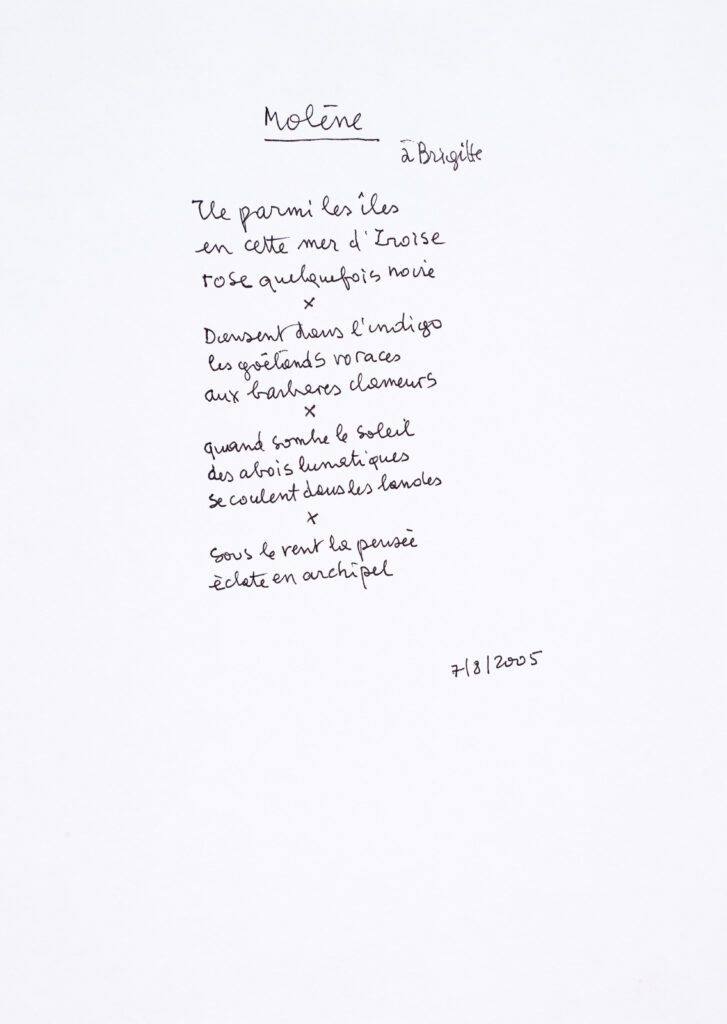 Molène
à Brigitte
Ile parmi les îles
en cette mer d'Iroise
rose quelquefois noire
x
Dansent dans l'indigo
les goélands voraces
aux barbares clameurs
x
quand sombre le soleil
des abois lunatiques
se coulent dans les landes
x
sous le vent la pensée
éclate en archipel
7/8/2005